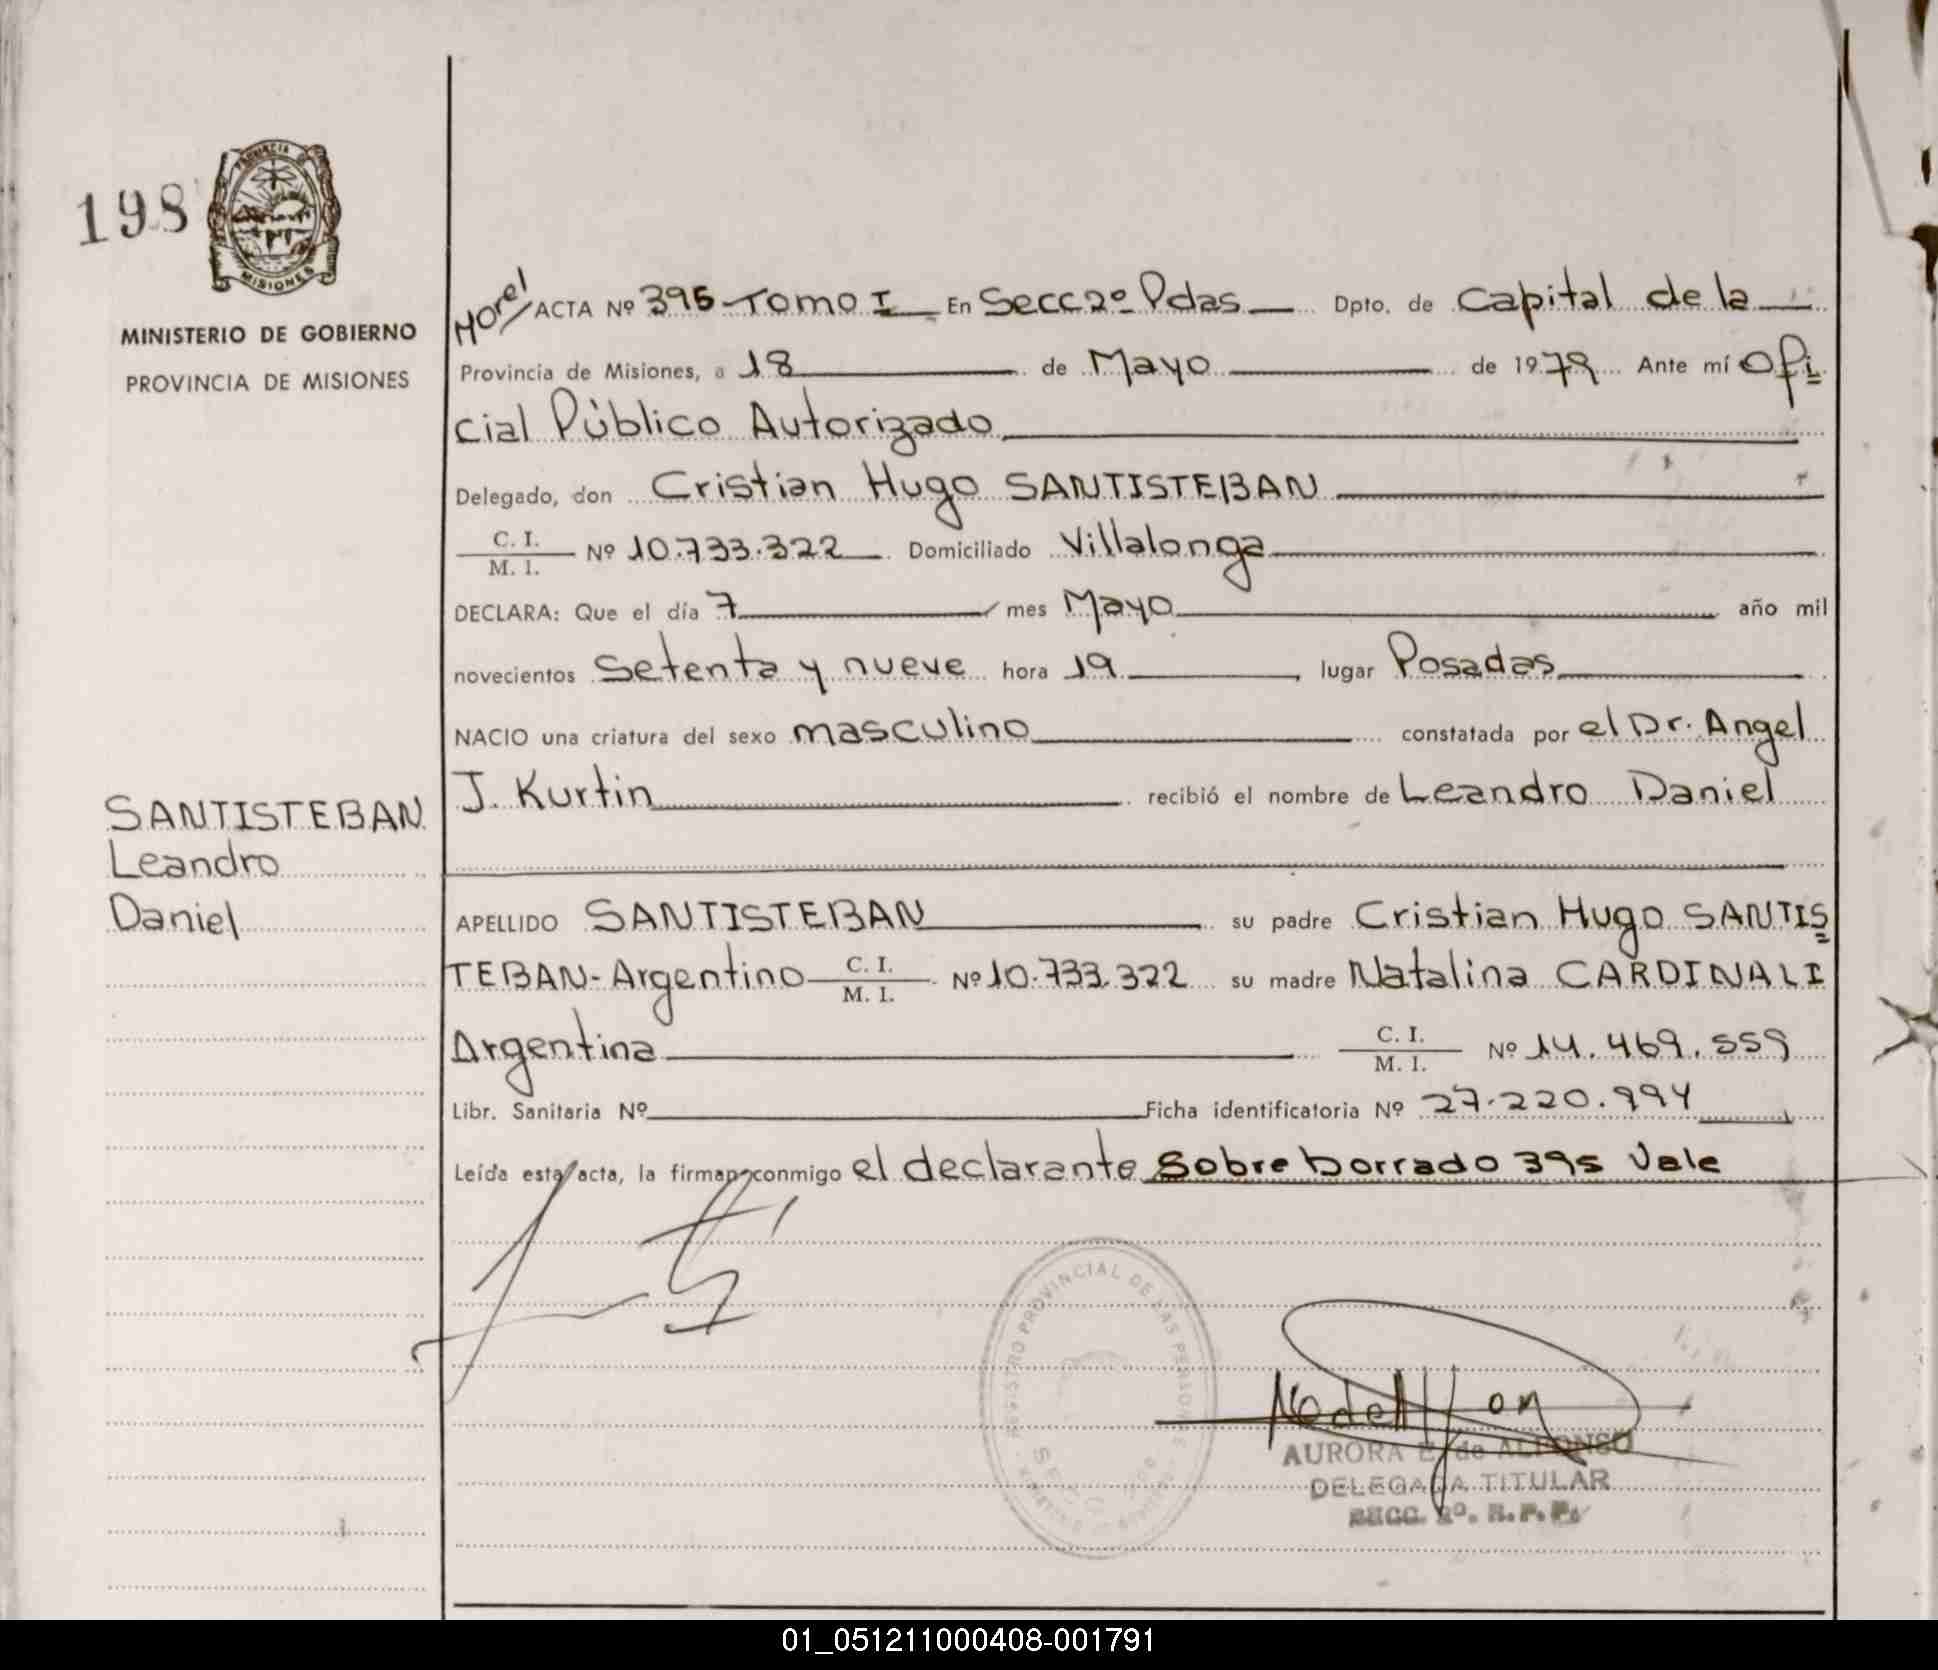 198
PROVINCIA DE
MISIONES
MINISTERIO DE GOBIERNO
PROVINCIA DE MISIONES
ACTA Nº 395 Tomo I En Secc 2º Pdas Dpto. de Capital de la
Provincia de Misiones, a 18 de Mayo de 1979 Ante mí Ofi
cial Público Autorizado
Delegado, don Cristian Hugo SANTISTEBAN
C. I.
M. I. Nº 10.733.322 Domiciliado Villalonga
DECLARA: Que el día 7 mes Mayo año mil
novecientos Setenta y nueve hora 19 lugar Posadas
NACIO una criatura del sexo masculino constatada por el Dr. Angel
J. Kurtin recibió el nombre de Leandro Daniel
SANTISTEBAN
Leandro
Daniel
APELLIDO SANTISTEBAN su padre Cristian Hugo SANTIS
TEBAN-Argentino C. I. M. I. Nº 10.733.322 su madre Natalina CARDINALI
Argentina C. I. M. I. Nº 14.469.559
Libr. Sanitaria Nº Ficha identificatoria Nº 27.220.994
Leída esta acta, la firman conmigo el declarante Sobre borrado 395 Vale
REGISTRO PROVINCIAL DE LAS PERSONAS
AURORA E. de ALFONSO
DELEGADA TITULAR
SECC. 2º. R. P. P.
01_051211000408-001791